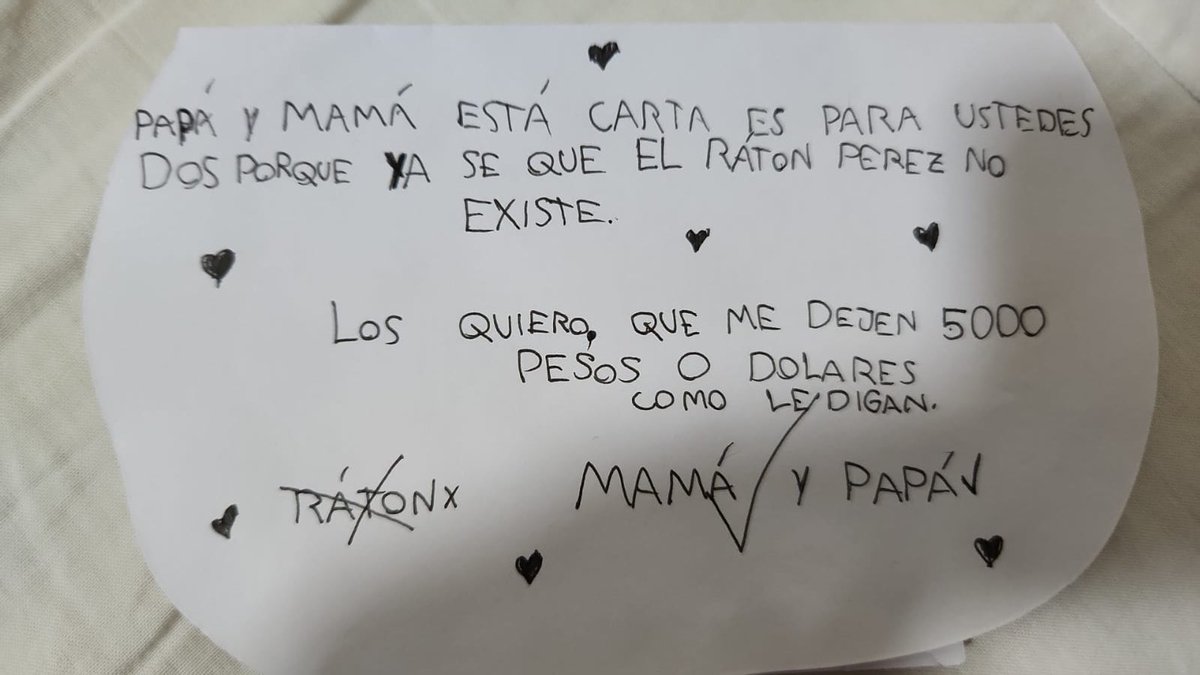 PAPÁ Y MAMÁ ESTÁ CARTA ES PARA USTEDES
DOS PORQUE YA SE QUE EL RÁTON PEREZ NO
EXISTE.
LOS QUIERO, QUE ME DEJEN 5000
PESOS O DOLARES
COMO LE DIGAN.
RÁTON X MAMÁ Y PAPÁ